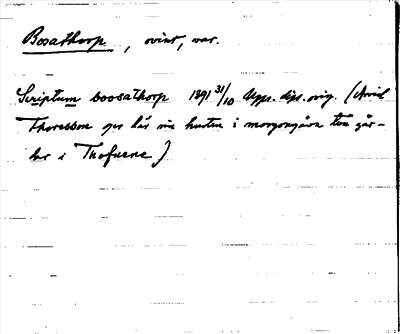 Bosathorp, ovisst, var.
Scriptum boosathorp 1391 31/10 Upps. dipl. orig. (Arvid
Thoresson ger här sin hustru i morgongåva två går-
dar i Thofuene)